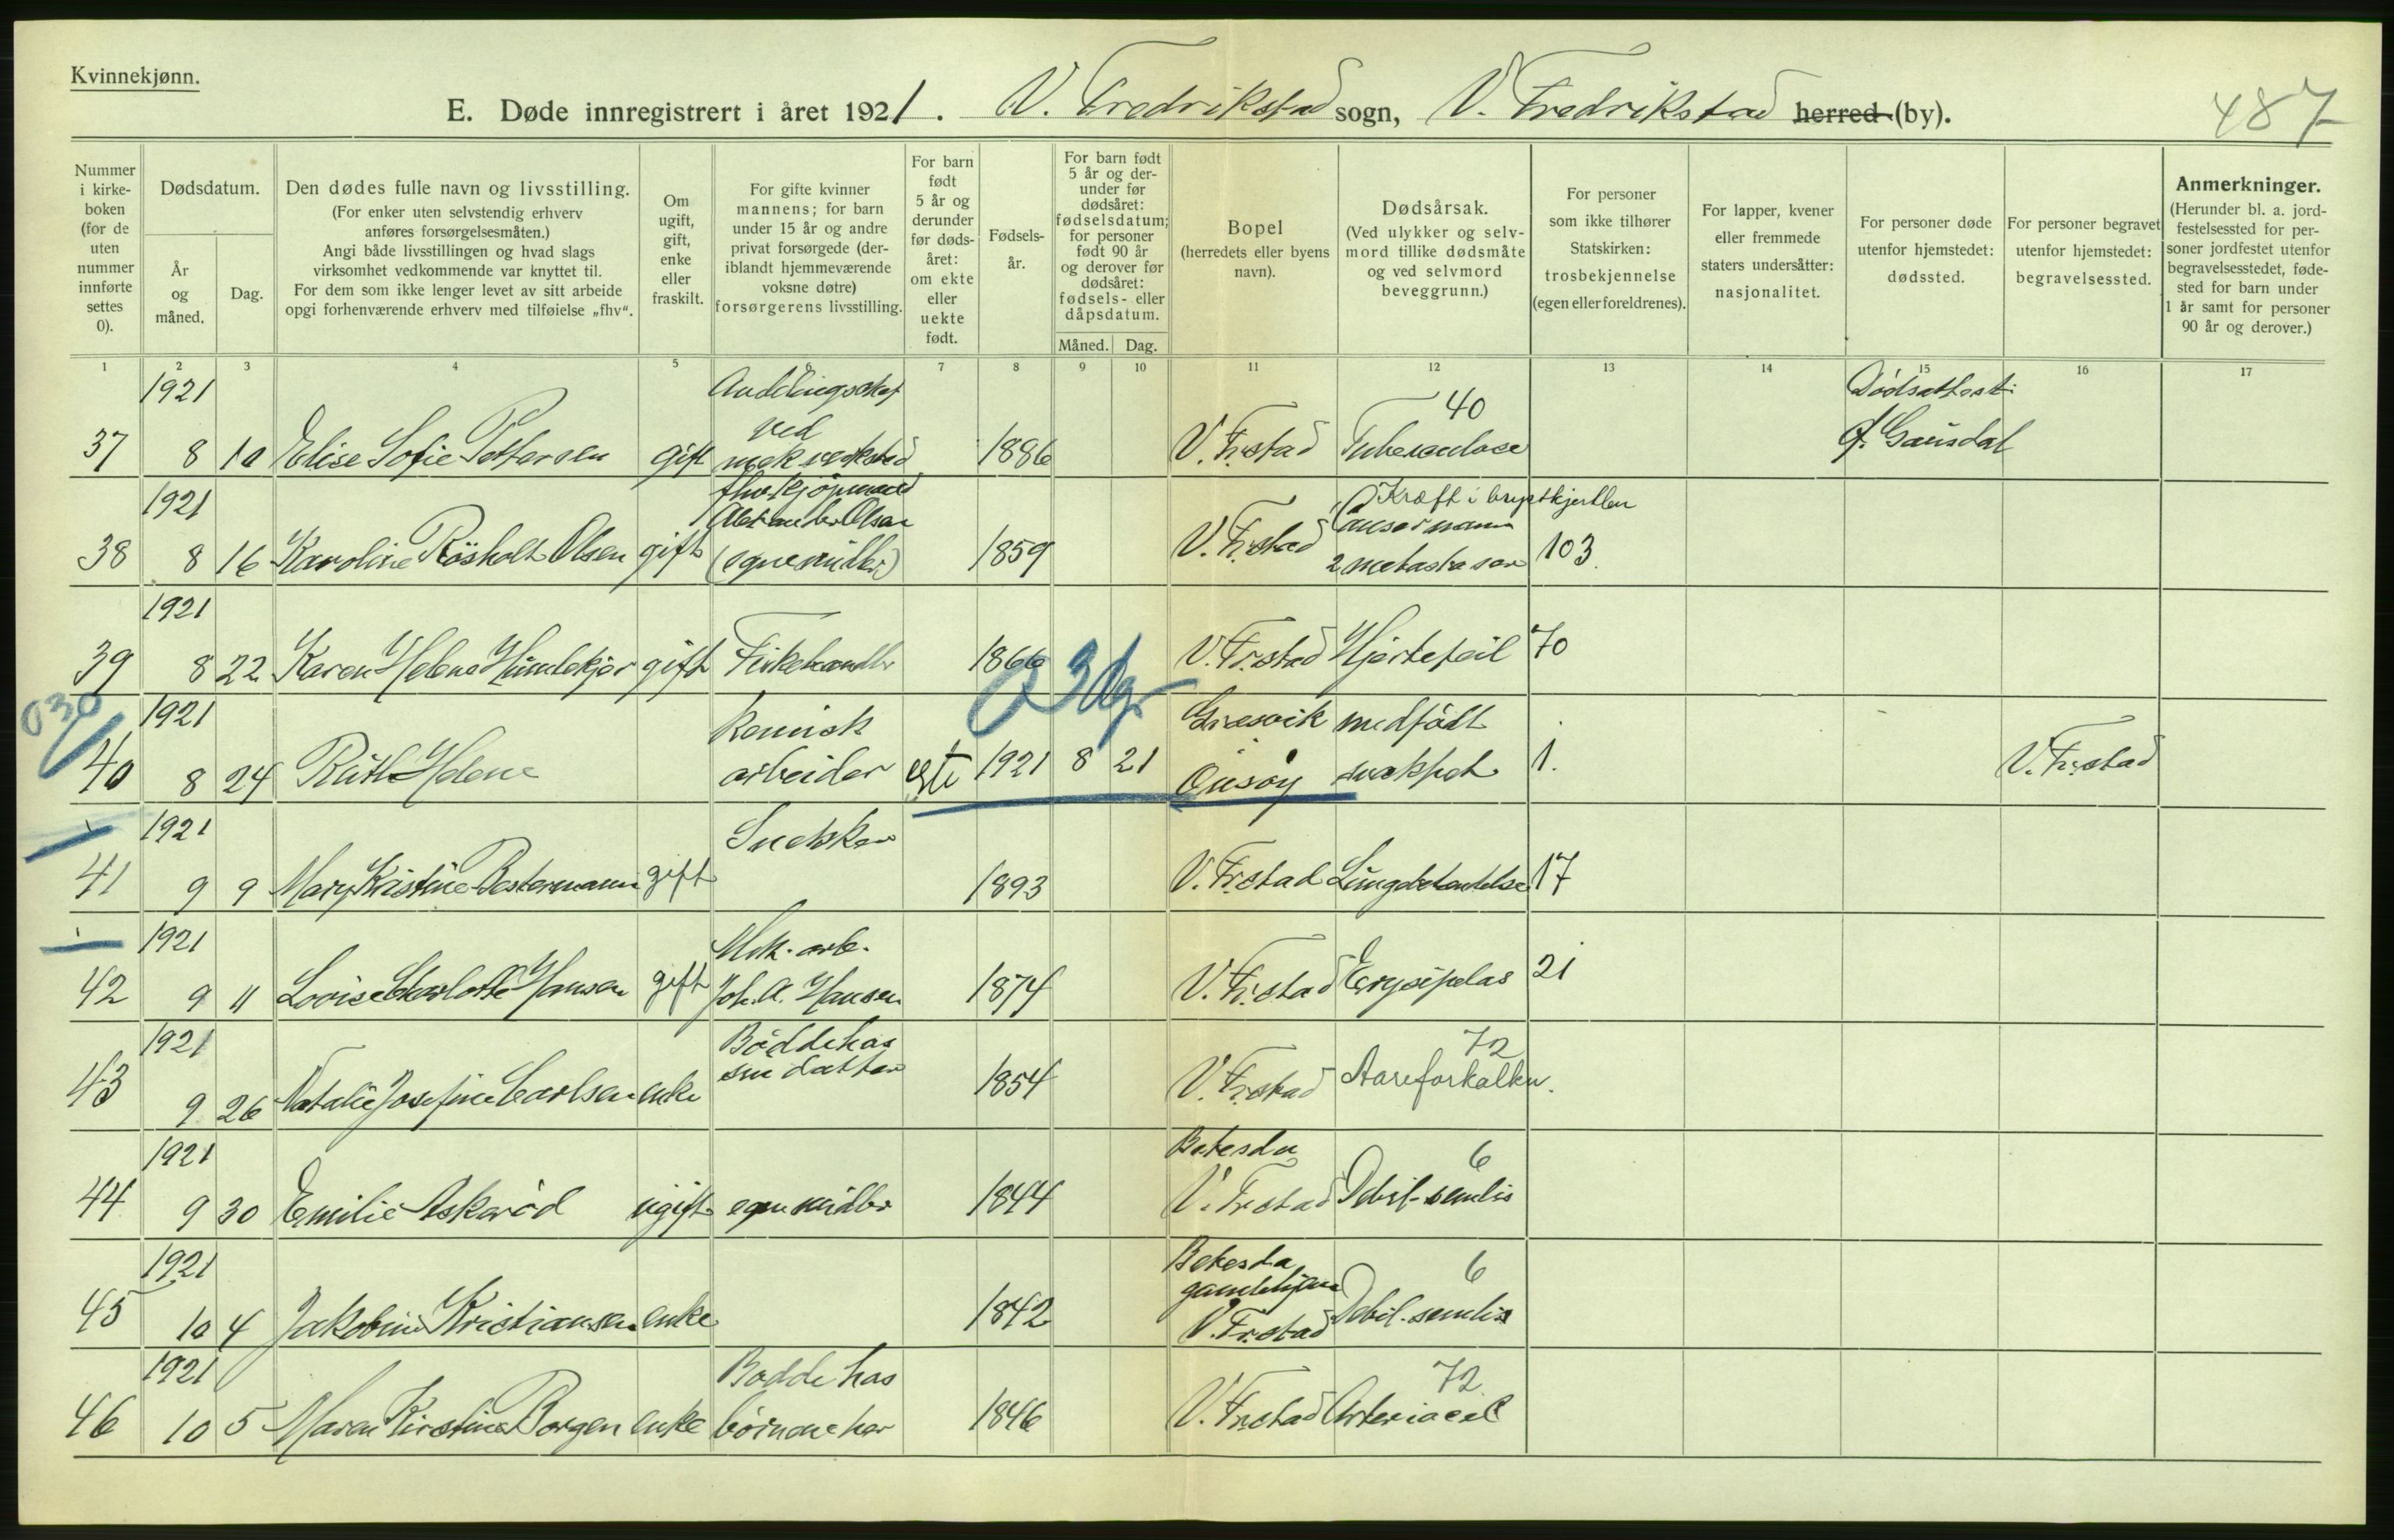 Kvinnekjønn.
E. Døde innregistrert i året 1921. V. Fredrikstad sogn, V. Fredrikstad herred (by).
487
Nummer i kirke-boken (for de uten nummer innførte settes 0).
Dødsdatum.
År og måned.
Dag.
Den dødes fulle navn og livsstilling.
(For enker uten selvstendig erhverv anføres forsørgelsesmåten.)
Angi både livsstillingen og hvad slags virksomhet vedkommende var knyttet til.
For dem som ikke lenger levet av sitt arbeide opgi forhenværende erhverv med tilføielse „fhv“.
Om ugift, gift, enke eller fraskilt.
For gifte kvinner mannens; for barn under 15 år og andre privat forsørgede (der-iblandt hjemmeværende voksne døtre) forsørgerens livsstilling.
For barn født 5 år og derunder før døds-året: om ekte eller uekte født.
Fødsels-år.
For barn født 5 år og der-under før dødsåret: fødselsdatum; for personer født 90 år og derover før dødsåret: fødsels- eller dåpsdatum.
Måned.
Dag.
Bopel
(herredets eller byens navn).
Dødsårsak.
(Ved ulykker og selv-mord tillike dødsmåte og ved selvmord beveggrunn.)
For personer som ikke tilhører Statskirken: trosbekjennelse (egen eller foreldrenes).
For lapper, kvener eller fremmede staters undersåtter: nasjonalitet.
For personer døde utenfor hjemstedet: dødssted.
For personer begravet utenfor hjemstedet: begravelsessted.
Anmerkninger.
(Herunder bl. a. jord-festelsessted for per-soner jordfestet utenfor begravelsesstedet, føde-sted for barn under 1 år samt for personer 90 år og derover.)
1 2 3 4 5 6 7 8 9 10 11 12 13 14 15 16 17
1921 40 Dödsattest:
37 8 10 Elise Sofie Pettersen gift ved mek verksted 1886 V. Fr.stad Tuberculose
1921 fhv. kjøpmand Kræft i brystkjertlen
38 8 16 Karoline Rösholt Olsen gift Alexander Olsen (egne midler) 1859 V. Fr.stad metastaser 103
1921
39 8 22 Karen Helene gift Fiskehandler 1866 V. Fr.stad Hjertefeil 70
030 3 dg.
1921 Kemisk Gresvik medfødt
40 8 24 Ruth Helene arbeider ekte 1921 8 21 Onsøy svakhet 1. V. Fr.stad
1921 Snekker
41 9 9 Mary Kristine Bestermann gift 1893 V. Fr.stad Lungebetendelse 17
1921 Mek. arb.
42 9 11 Lovise Charlotte Hansen gift Joh. A. Hansen 1874 V. Fr.stad Erysipelas 21
1921 Bodde hos 72
43 9 26 Natalie Josefine Carlsen enke sin datter 1854 V. Fr.stad Aareforkalkn.
1921 Betesda 6
44 9 30 Emilie Askeröd ugift egne midler 1844 V. Fr.stad Debil. senilis
1921 Betesda gamlehjem 6
45 10 4 Jakobine Kristiansen enke 1842 V. Fr.stad Debil. senilis
1921 Bodde hos 72
46 10 5 Maren Kirstine Borgen enke 1846 V. Fr.stad